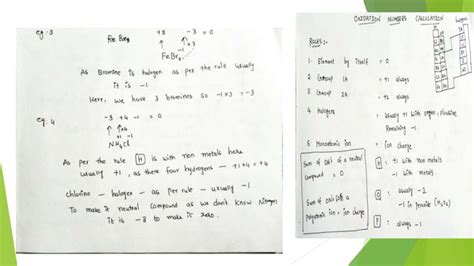 eg: 3
Fe Br3
+3 -3 = 0
-1
FeBr3
×3
As Bromine is halogen as per the rule usually
it is -1
Here, we have 3 bromines so -1×3 = -3
eg: 4
-3 +4 -1 = 0
+1 ×4
NH4Cl
As per the rule H is with non metals here
usually +1, as there four hydrogens - +1×4 = +4
Chlorine - halogen - as per rule - usually -1
To make it neutral compound as we don't know Nitrogen
it is -3 to make it zero.
OXIDATION NUMBERS CALCULATION
RULES:-
1. Element by itself = 0
2. Group 1A = +1 always
3. Group 2A = +2 always
4. Halogens = Usually -1 with
Remaining -1.
5. Monoatomic ion = ion charge
H = +1 with non metals
-1 with metals
O = Usually -2
-1 in peroxide (H2O2)
F = always -1
Sum of OXI of a neutral
compound = 0
Sum of OXI of a
Polyatomic ion = ion charge